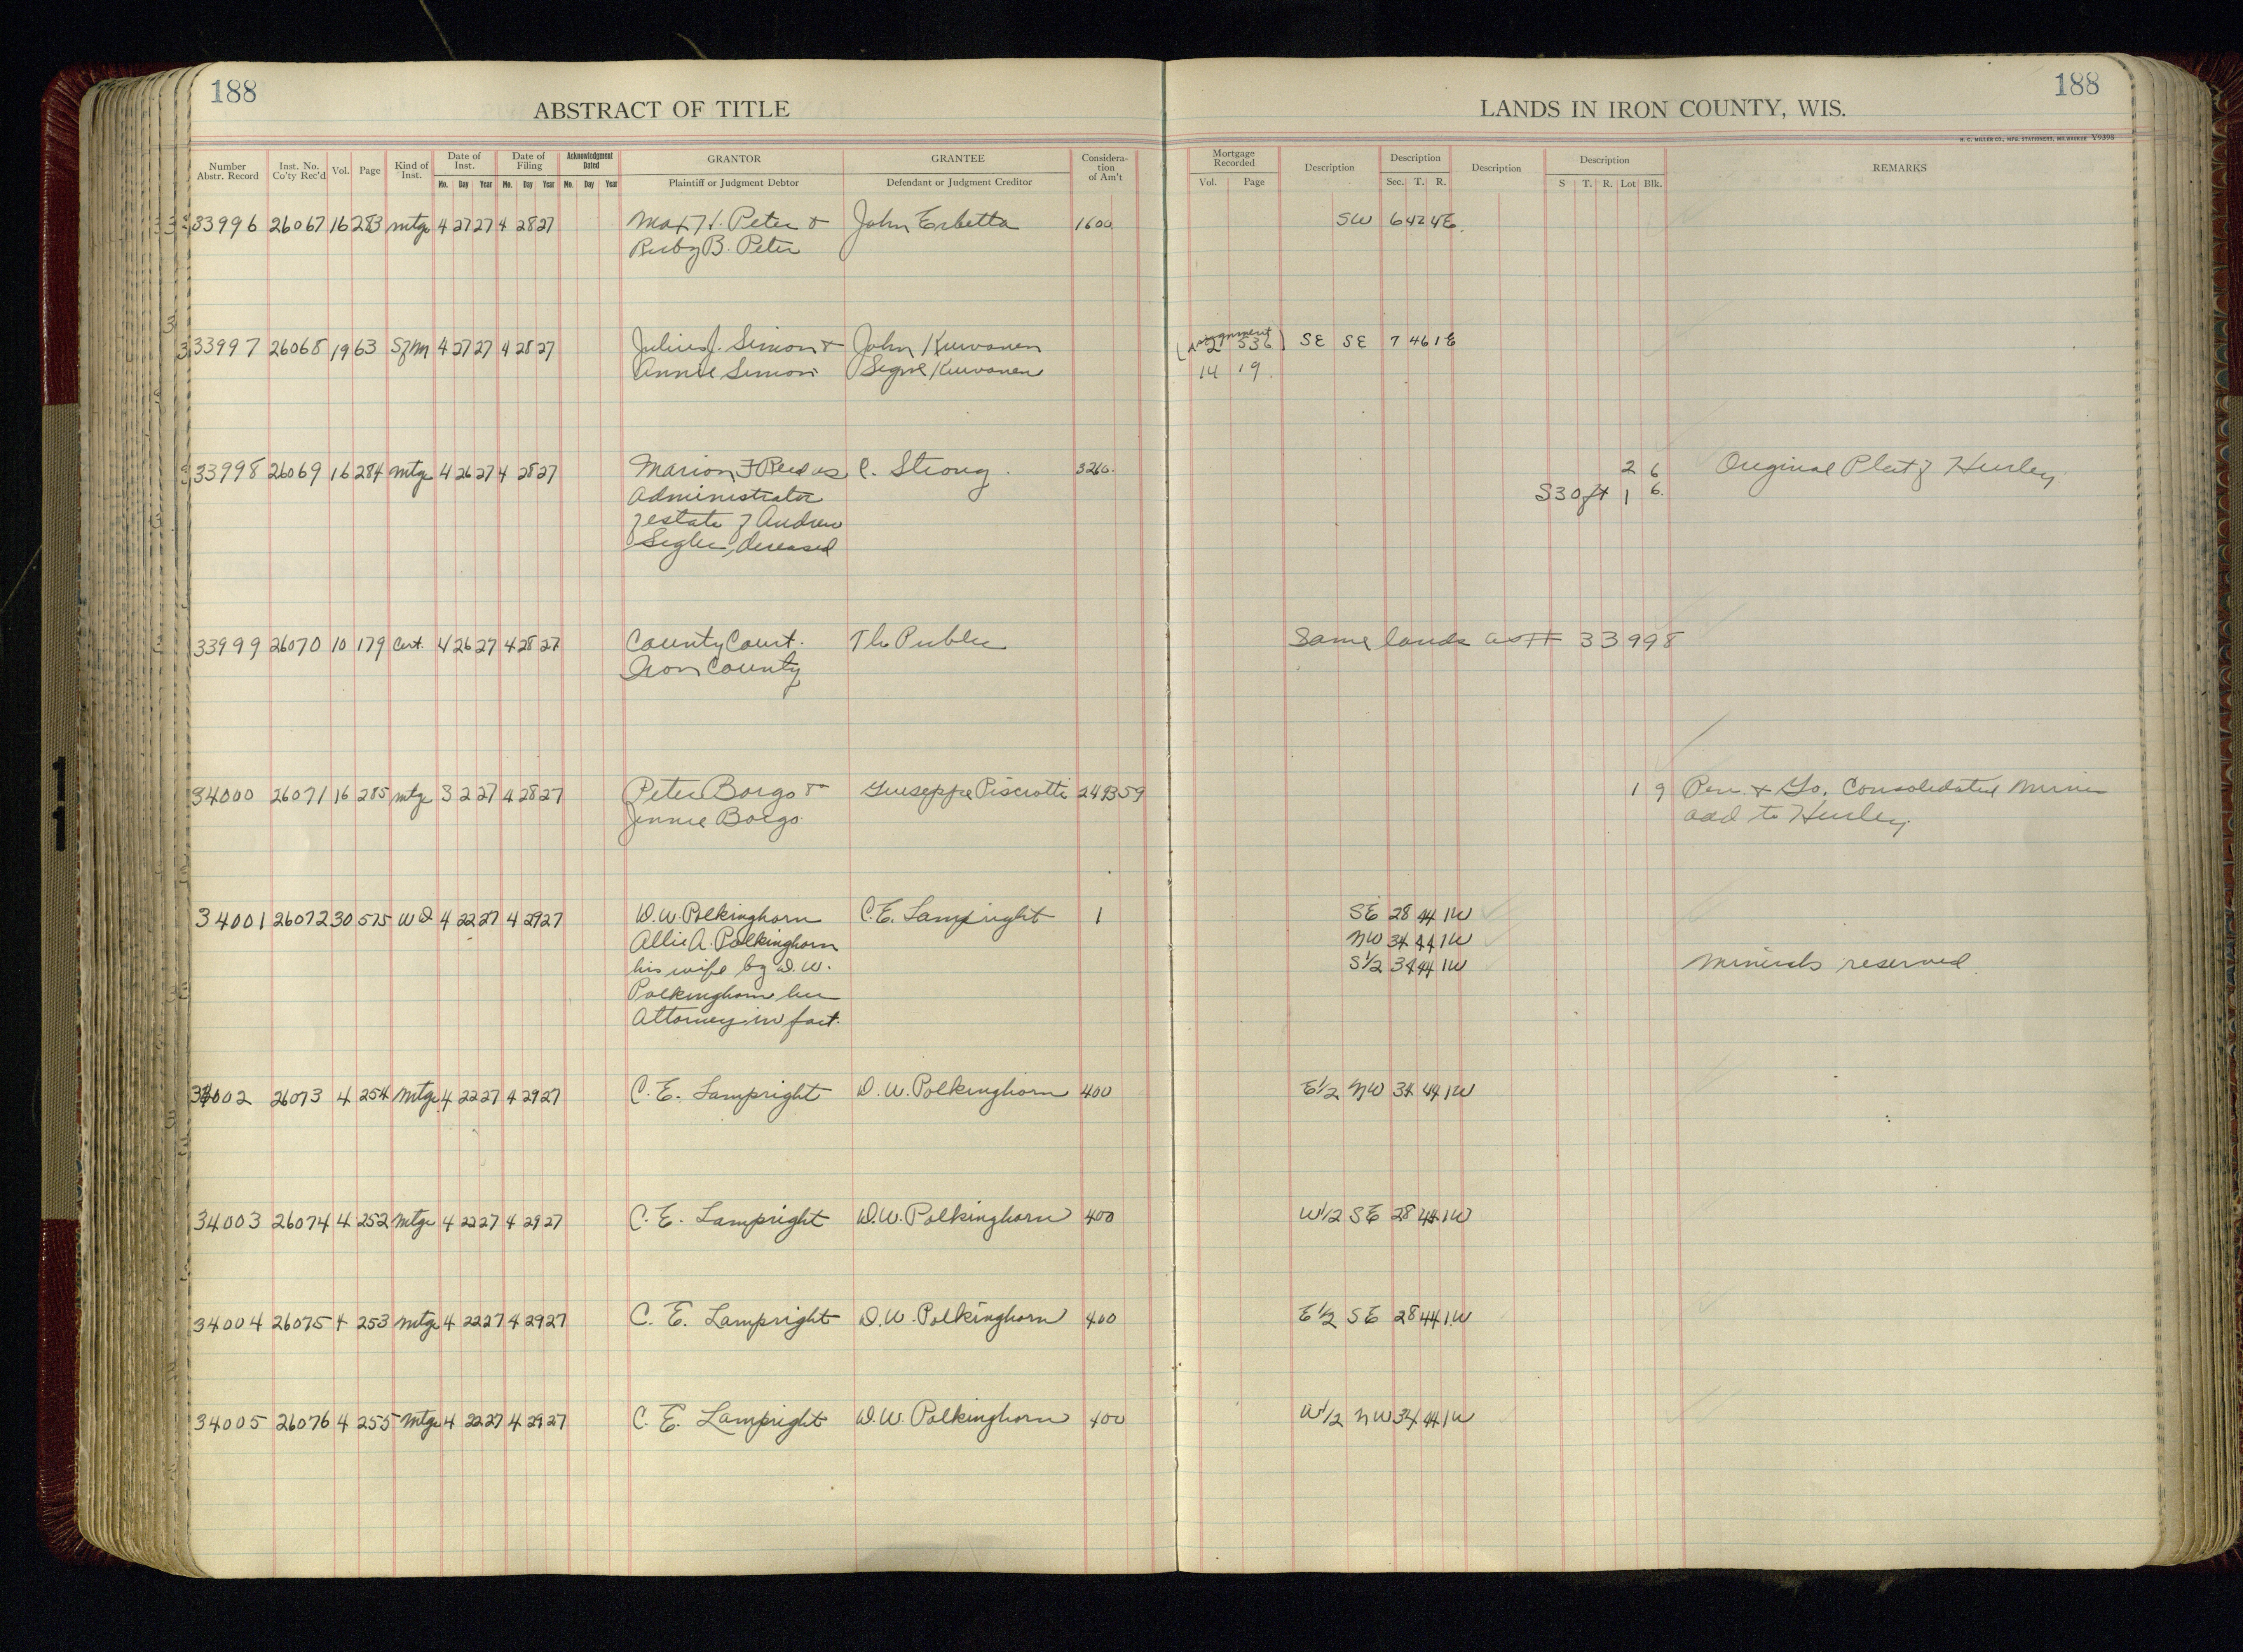 188
188
ABSTRACT OF TITLE
LANDS IN IRON COUNTY, WIS.
H. C. MILLER CO., MFG. STATIONERS, MILWAUKEE V9398
Number Abstr. Record Inst. No. Co'ty Rec'd Vol. Page Kind of Inst. Date of Inst. Date of Filing Acknowledgment Dated GRANTOR GRANTEE Consideration of Am't Mortgage Recorded Description Description Description Description REMARKS
Mo. Day Year Mo. Day Year Mo. Day Year Plaintiff or Judgment Debtor Defendant or Judgment Creditor Vol. Page Sec. T. R. S T. R. Lot Blk.
33996 26067 16 283 mtge 4 27 27 4 28 27 Max H. Peter & John Erbetta 1600 SW 6 42 4E
Ruby B. Peter
33997 26068 19 63 SfM 4 27 27 4 28 27 Julius J. Simon & John Kuivanen (Assignment 2 536) SE SE 7 46 1E
Annie Simon Signe Kuivanen 14 19
33998 26069 16 284 mtge 4 26 27 4 28 27 Marion F Reed as C. Strong 3260 2 6 Original Plat of Hurley
Administrator S30ft 1 6
of estate of Andrew
Sigler, deceased
33999 26070 10 179 Cert. 4 26 27 4 28 27 County Court. The Public Same lands as # 33998
Iron County
34000 26071 16 285 mtge 3 2 27 4 28 27 Peter Borgo & Guiseppe Pisciotti 2493 59 1 9 Pen. & Go. Consolidated Mines
Jennie Borgo add to Hurley
34001 26072 30 575 WD 4 22 27 4 29 27 D.W. Polkinghorn C.E. Lampright 1 SE 28 44 1W
Allie A. Polkinghorn NW 34 44 1W
his wife by D.W. S1/2 34 44 1W Minerals reserved
Polkinghorn her
Attorney in fact.
34002 26073 4 254 Mtge 4 22 27 4 29 27 C. E. Lampright D. W. Polkinghorn 400 E1/2 NW 34 44 1W
34003 26074 4 252 Mtge 4 22 27 4 29 27 C. E. Lampright D.W. Polkinghorn 400 W1/2 SE 28 44 1W
34004 26075 4 253 Mtge 4 22 27 4 29 27 C. E. Lampright D.W. Polkinghorn 400 E1/2 SE 28 44 1W
34005 26076 4 255 Mtge 4 22 27 4 29 27 C. E. Lampright D.W. Polkinghorn 400 W1/2 NW 34 44 1W